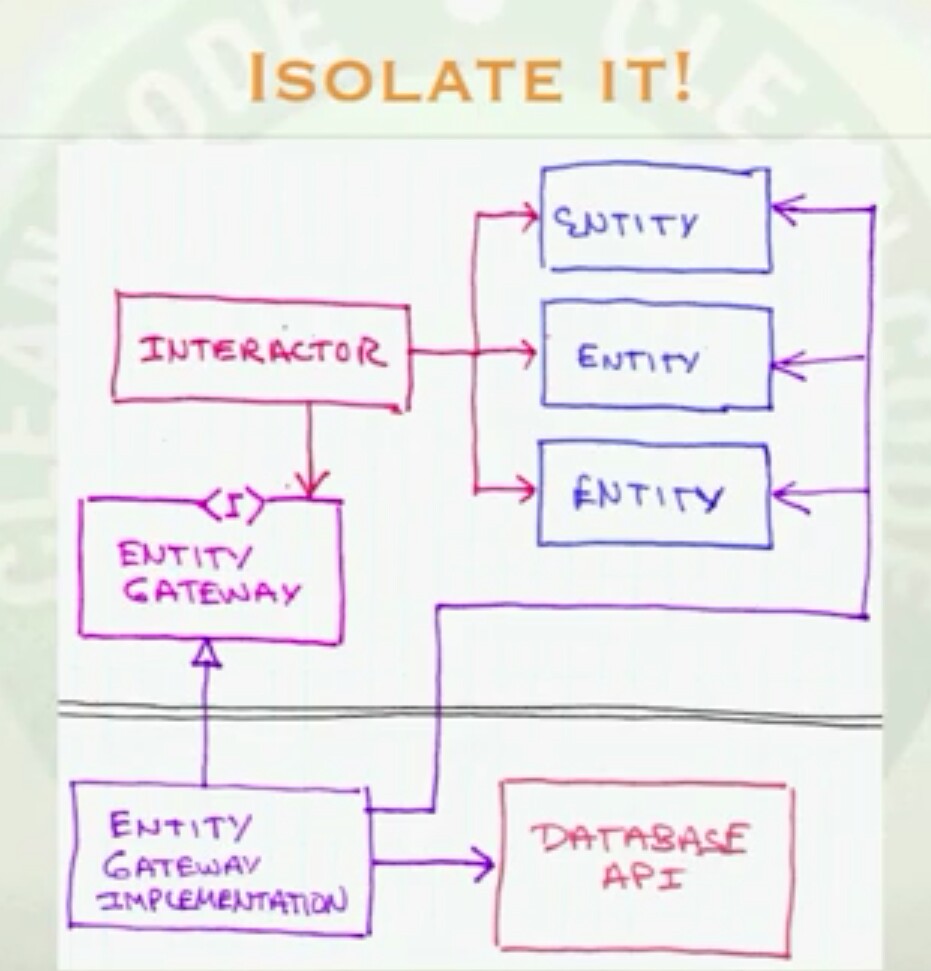 ISOLATE IT!
ENTITY
INTERACTOR
ENTITY
ENTITY
<I>
ENTITY
GATEWAY
ENTITY
GATEWAY
IMPLEMENTATION
DATABASE
API